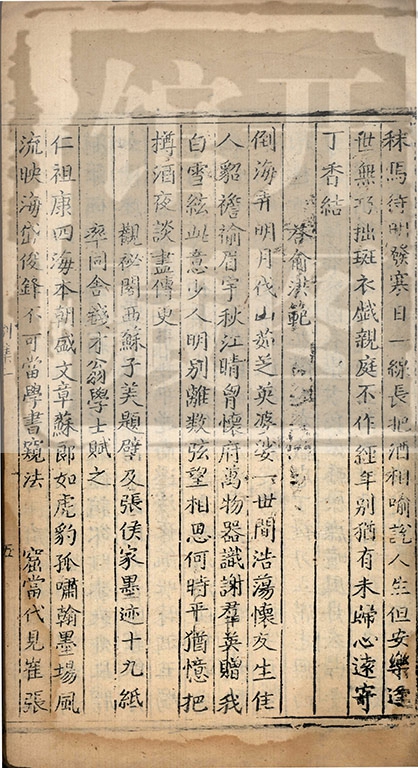 秣馬待明發寒日一線長把酒相喻說人生但安樂逢
世無巧拙斑衣戲親庭不作經年別猶有未歸心遠寄
丁香結
答俞清範
倒海弄明月代山茹芝英婆娑一世間浩蕩懷友生佳
人貂襜諭眉宇秋江晴曾懷府萬物器識謝群英贈我
白雪絃此意少人明別離数弦望相思何時平猶憶把
樽酒夜談盡傳史
觀秘閣西蘇子美題壁及張侯家墨迹十九紙
率同舍錢才翁學士賦之
仁祖康四海本朝盛文章蘇郎如虎豹孤嘯翰墨場風
流映海岱俊鋒不可當學書窺法 窟當代見崔張
別集
五